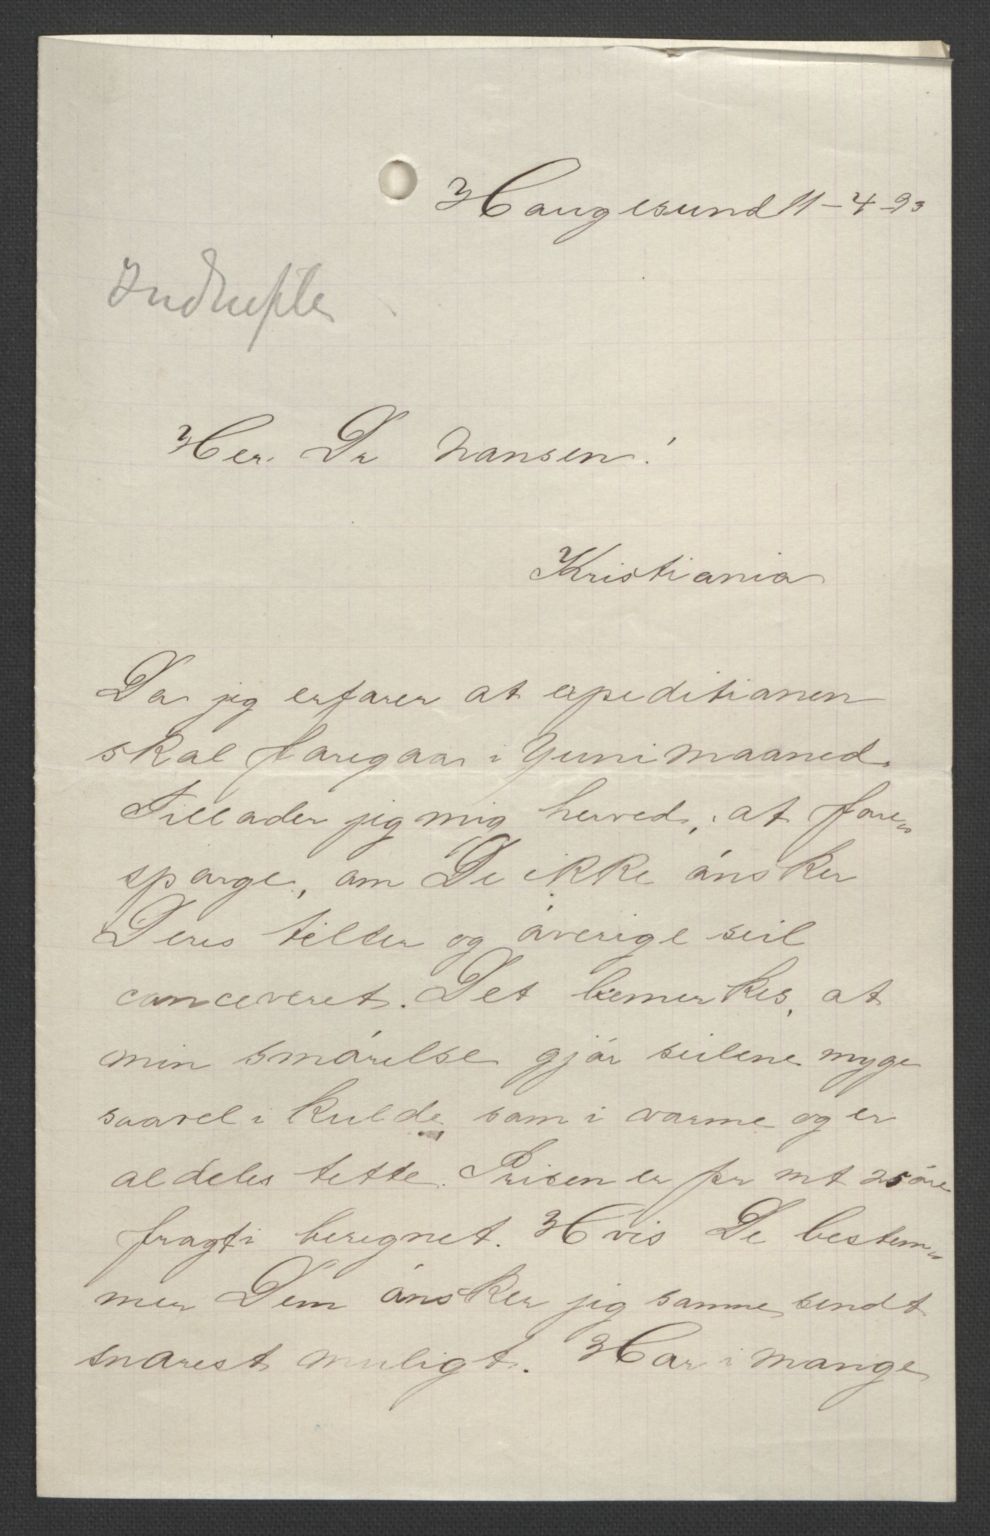 Haugesund 11-4-93
Her. Dr Nansen!
Kristiania
Da jeg erfarer at expeditionen
skal foregaar i Juni maaned.
Tillader jeg mig herved, at fore„
sporge, om De ikke ónsker
Deres telter og óverige seil
conceveret. Det bemerkes, at
min smórelse gjór seilene myge
saavel i kulde som i varme og er
aldeles tette. Prisen er pr mt 25 óre
fragti beregnet. Hvis De bestem„
mer Dem ónsker jeg samme sendt
snarest muligt. Har i mange